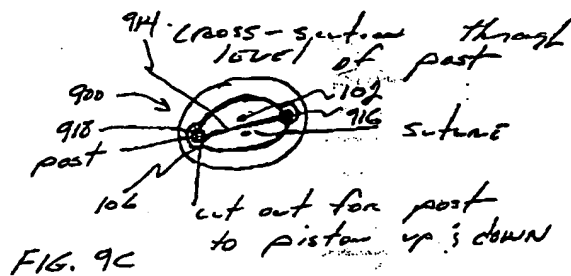 914
cross-section through
level of post
900
102
918
916
post
suture
106
cut out for post
to piston up & down
FIG. 9C